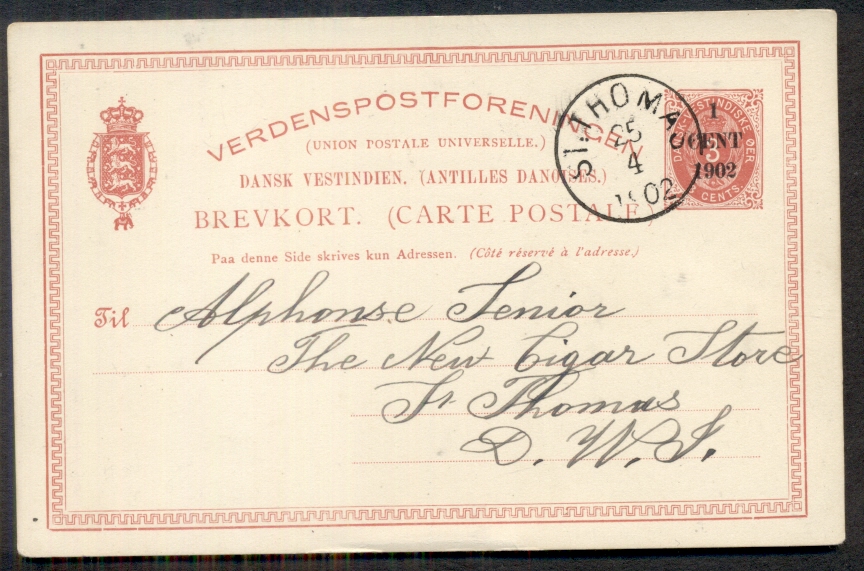 VERDENSPOSTFORENINGEN
(UNION POSTALE UNIVERSELLE.)
DANSK VESTINDIEN. (ANTILLES DANOISES.)
BREVKORT. (CARTE POSTALE)
Paa denne Side skrives kun Adressen. (Côté réservé à l'adresse.)
ST. THOMAS
25
4
1902
VESTINDISKE ØER
3
CENTS
1
CENT
1902
Til Alphonse Senior
The New Cigar Store
St. Thomas
D. W. I.